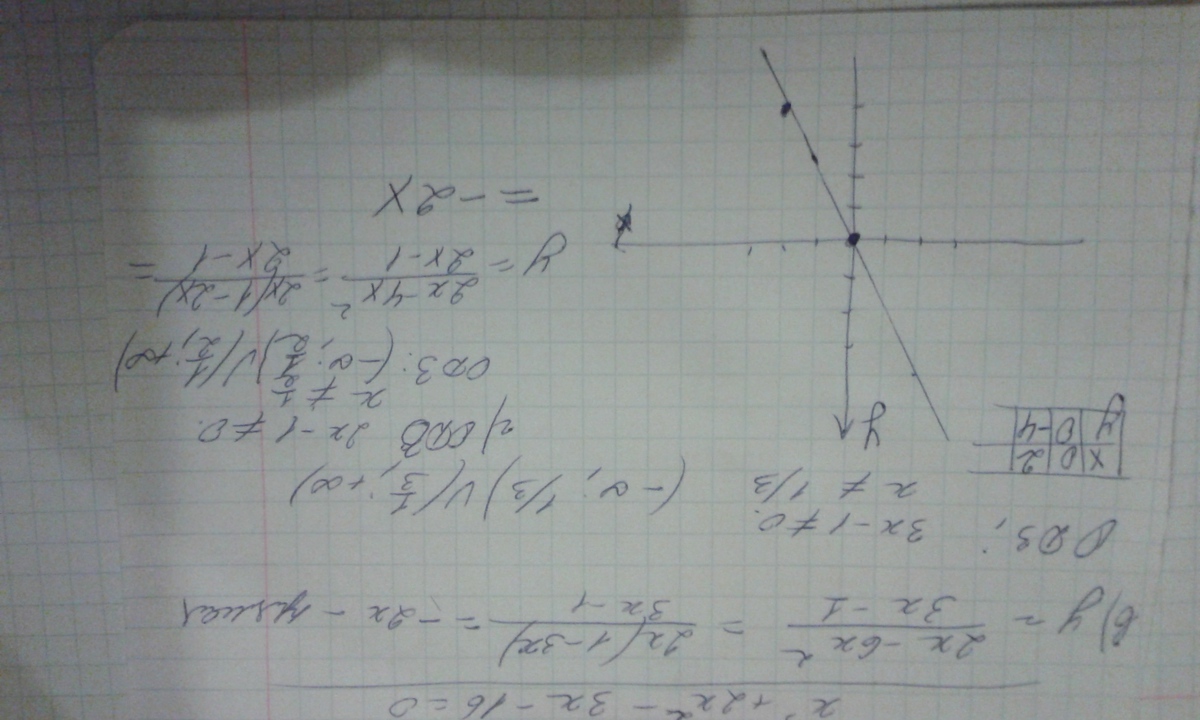 x³+2x²-3x-16=0
в) y = (2x-6x²)/(3x-1) = (2x(1-3x))/(3x-1) = -2x - прямая
ОДЗ: 3x-1≠0.
x ≠ 1/3 (-∞; 1/3) ∨ (1/3; +∞)
x 0 2
y 0 -4
y
x
г) ОДЗ 2x-1≠0.
x ≠ 1/2
ОДЗ: (-∞; 1/2) ∨ (1/2; +∞)
y = (2x-4x²)/(2x-1) = (2x(1-2x))/(2x-1) =
= -2x